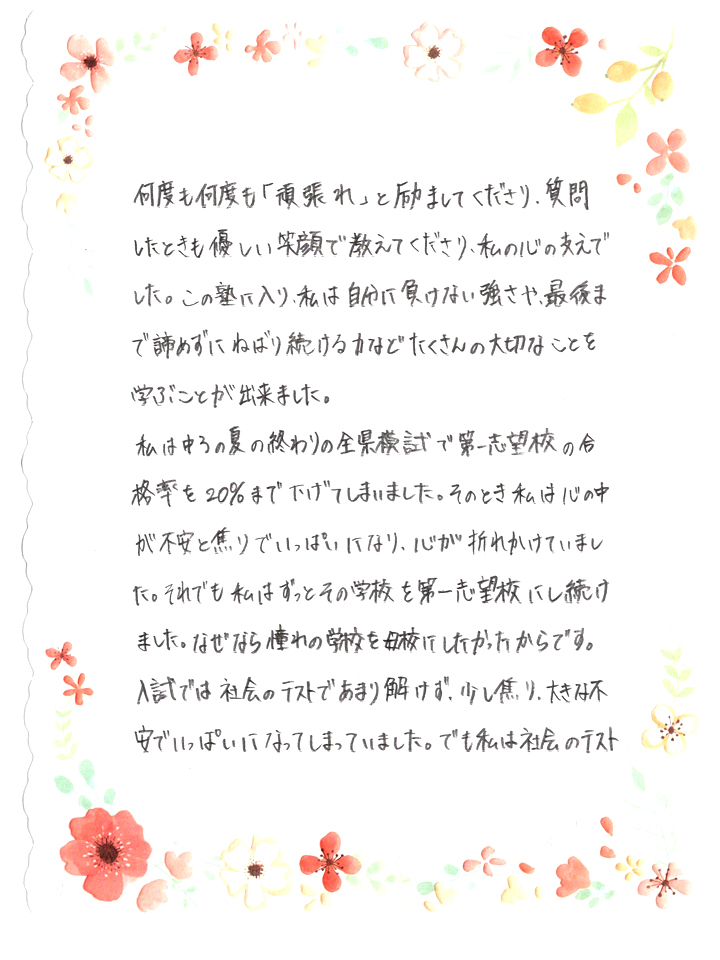 何度も何度も「頑張れ」と励ましてくださり、質問
したときも優しい笑顔で教えてくださり、私の心の支えで
した。この塾に入り、私は自分に負けない強さや、最後ま
で諦めずにねばり続ける力などたくさんの大切なことを
学ぶことが出来ました。
私は中3の夏の終わりの全県模試で第一志望校の合
格率を20%まで下げてしまいました。そのとき私は心の中
が不安と焦りでいっぱいになり、心が折れかけていまし
た。それでも私はずっとその学校を第一志望校にし続け
ました。なぜなら憧れの学校を母校にしたかったからです。
入試では社会のテストであまり解けず、少し焦り、大きな不
安でいっぱいになってしまっていました。でも私は社会のテスト